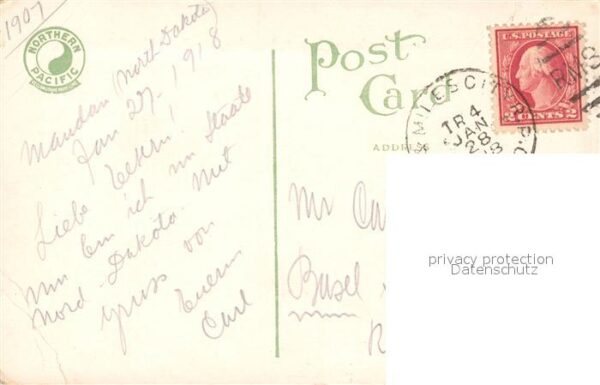 1907
NORTHERN
PACIFIC
Mandan (North Dakota)
Jan 27 - 1918
Liebe
nun bin ich im Staate
Nord-Dakota. Mit
gruss von
Eurem
Carl
Post
Card
ADDRESS
U.S. POSTAGE
2 CENTS 2
MILES CITY
TR 4
JAN
28
R.M.S.
Mr Ca
Basel
privacy protection
Datenschutz